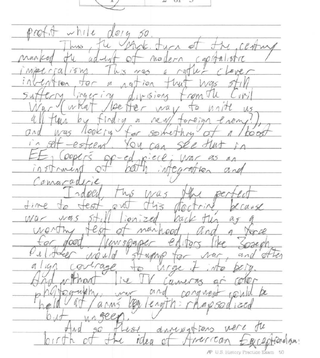 profit while doing so.
Thus, the turn of the century
marked the advent of modern capitalistic
imperialism. This was a rather clever
invention for a nation that was still
suffering lingering divisions from the Civil
War (what better way to unite us
all than by finding a real foreign enemy)
and was looking for something of a boost
in self-esteem. You can see that in
EE Cooper's op-ed piece; war as an
instrument of both integration and
camaraderie.
Indeed, this was the perfect
time to test out this doctrine, because
war was still lionized back then as a
worthy test of manhood and a force
for good. Newspaper editors like Joseph
Pulitzer would stump for war, and often
align coverage to urge it into being.
And without live TV cameras or color
photography, war and conquest could be
held at arms length: rhapsodized
but unseen.
And so these were the
birth of the idea of American Exceptionalism.
AP U.S. History Practice Exam